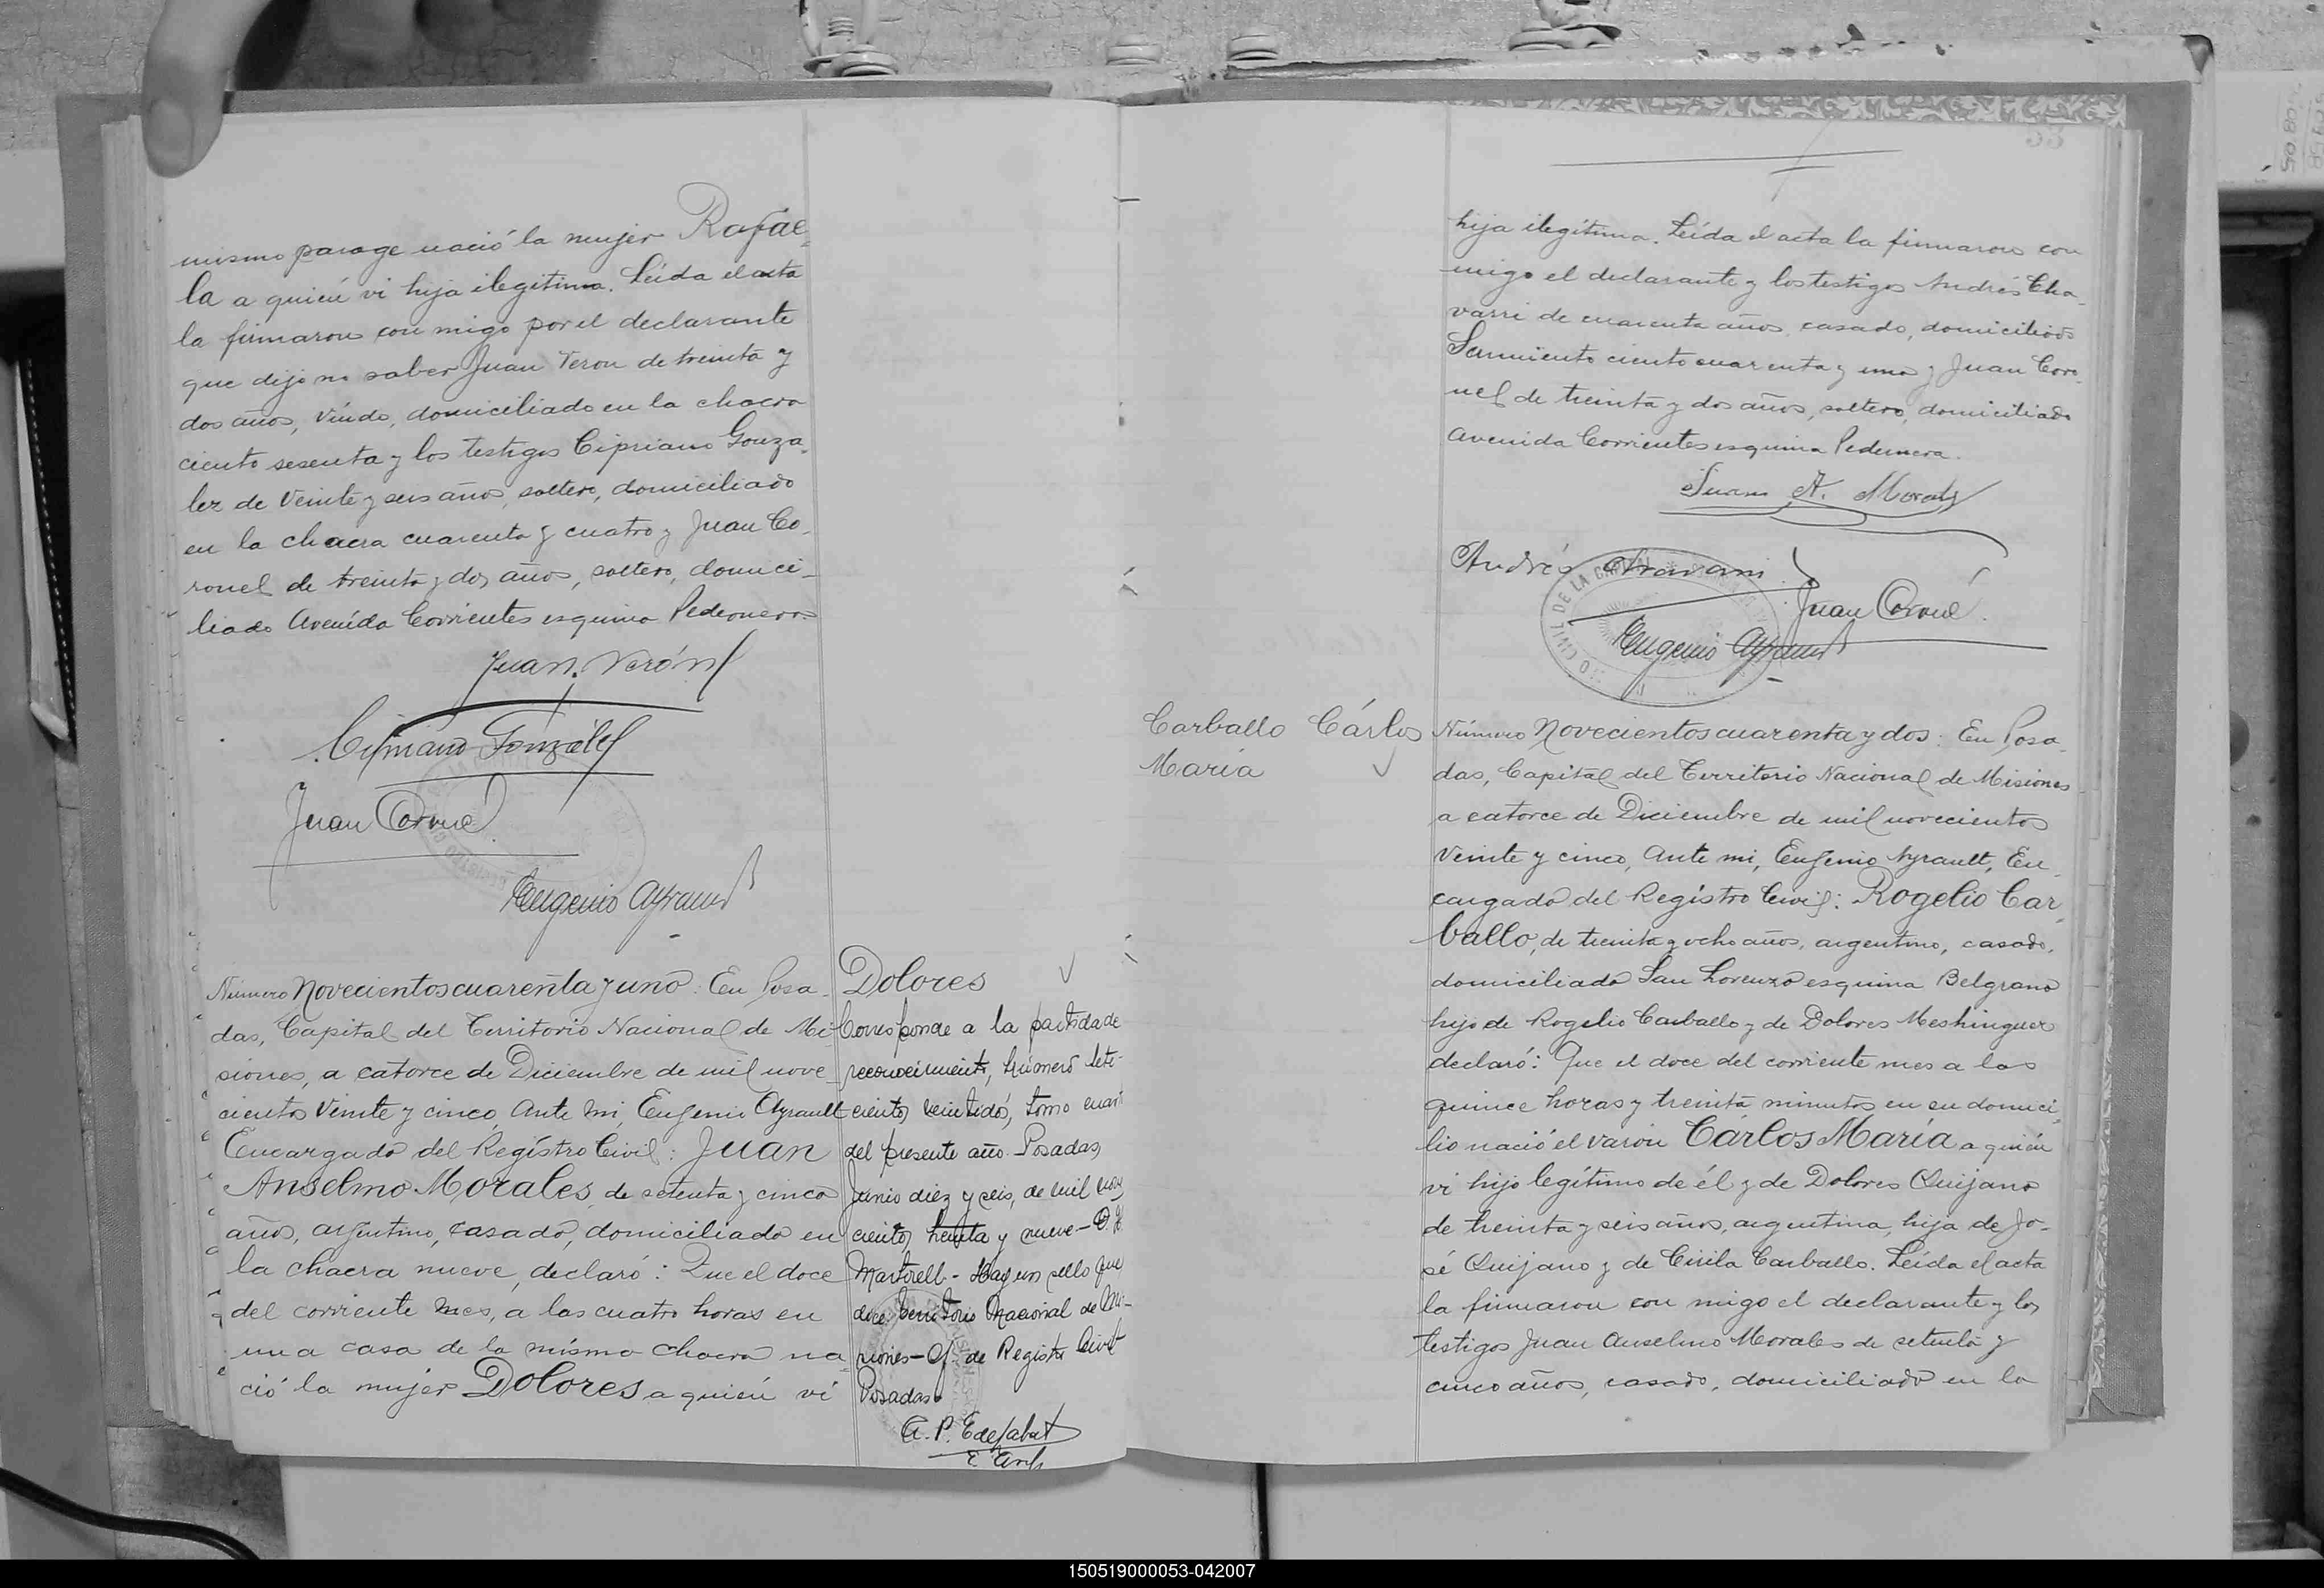 mismo parage nació la mujer Rafae-
la a quién vi hija ilegítima. Leída el acta
la firmaron con migo por el declarante
que dijo no saber Juan Veron de treinta y
dos años, viudo, domiciliado en la chacra
ciento sesenta y los testigos Cipriano Gonza-
lez de veinte y seis años, soltero, domiciliado
en la chacra cuarenta y cuatro y Juan Co-
ronel de treinta y dos años, soltero, domici-
liado Avenida Corrientes esquina Pedernera.
Juan Verón
Cipriano González
Juan Coronel
Eugenio Ayrault
Número Novecientos cuarenta y uno: En Posa-
das, Capital del Territorio Nacional de Mi-
siones, a catorce de Diciembre de mil nove-
cientos veinte y cinco, Ante mi, Eugenio Ayrault
Encargado del Regístro Civil: Juan
Anselmo Morales, de setenta y cinco
años, argentino, casado, domiciliado en
la chacra nueve, declaró: Que el doce
del corriente mes, a las cuatro horas en
una casa de la misma chacra na-
ció la mujer Dolores a quién vi
Dolores
Corresponde a la partida de
reconocimiento, número sete-
cientos veintidós, tomo cuart
del presente año. Posadas,
Junio diez y seis, de mil nov
cientos treinta y nueve-
Martorell- Hay un sello que
dice: Territorio Nacional de Mi-
siones- Of. de Registro Civil
Posadas.
33
hija ilegítima. Leída el acta la firmaron con
migo el declarante y los testigos Andrés Cha-
varri de cuarenta años, casado, domiciliado
Sarmiento ciento cuarenta y uno y Juan Coro-
nel de treinta y dos años, soltero, domiciliado
Avenida Corrientes esquina Pedernera.
Juan A. Morales
Andrés
Juan Coronel
Eugenio Ayrault
DE LA CAPITAL
Carballo Cárlos
María
Número Novecientos cuarenta y dos: En Posa-
das, Capital del Territorio Nacional de Misiones
a catorce de Diciembre de mil novecientos
veinte y cinco, Ante mi, Eugenio Ayrault, En-
cargado del Regístro Civil: Rogelio Car-
ballo, de treinta y ocho años, argentino, casado,
domiciliado San Lorenzo esquina Belgrano
hijo de Rogelio Carballo y de Dolores Meshinguer
declaró: Que el doce del corriente mes a las
quince horas y treinta minutos en su domici-
lio nació el varón Cárlos María a quién
vi hijo legítimo de él y de Dolores Quijano
de treinta y seis años, argentina, hija de Jo-
sé Quijano y de Cirila Carballo. Leída el acta
la firmaron con migo el declarante y los
testigos Juan Anselmo Morales de setenta y
cinco años, casado, domiciliado en la
150519000053-042007